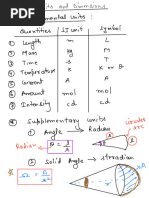 Units And Dimensions
Fundamental Units :
Quantities SI unit Symbol
① Length m L
② Mass kg M
③ Time s T
④ Temperature K K or θ
⑤ Current A A
⑥ Amount mol mol
⑦ Intensity cd cd
Supplementary units
① Angle → Radian
Radian θ = l/r
circular arc
② Solid Angle → steradian
Ω = A/r²